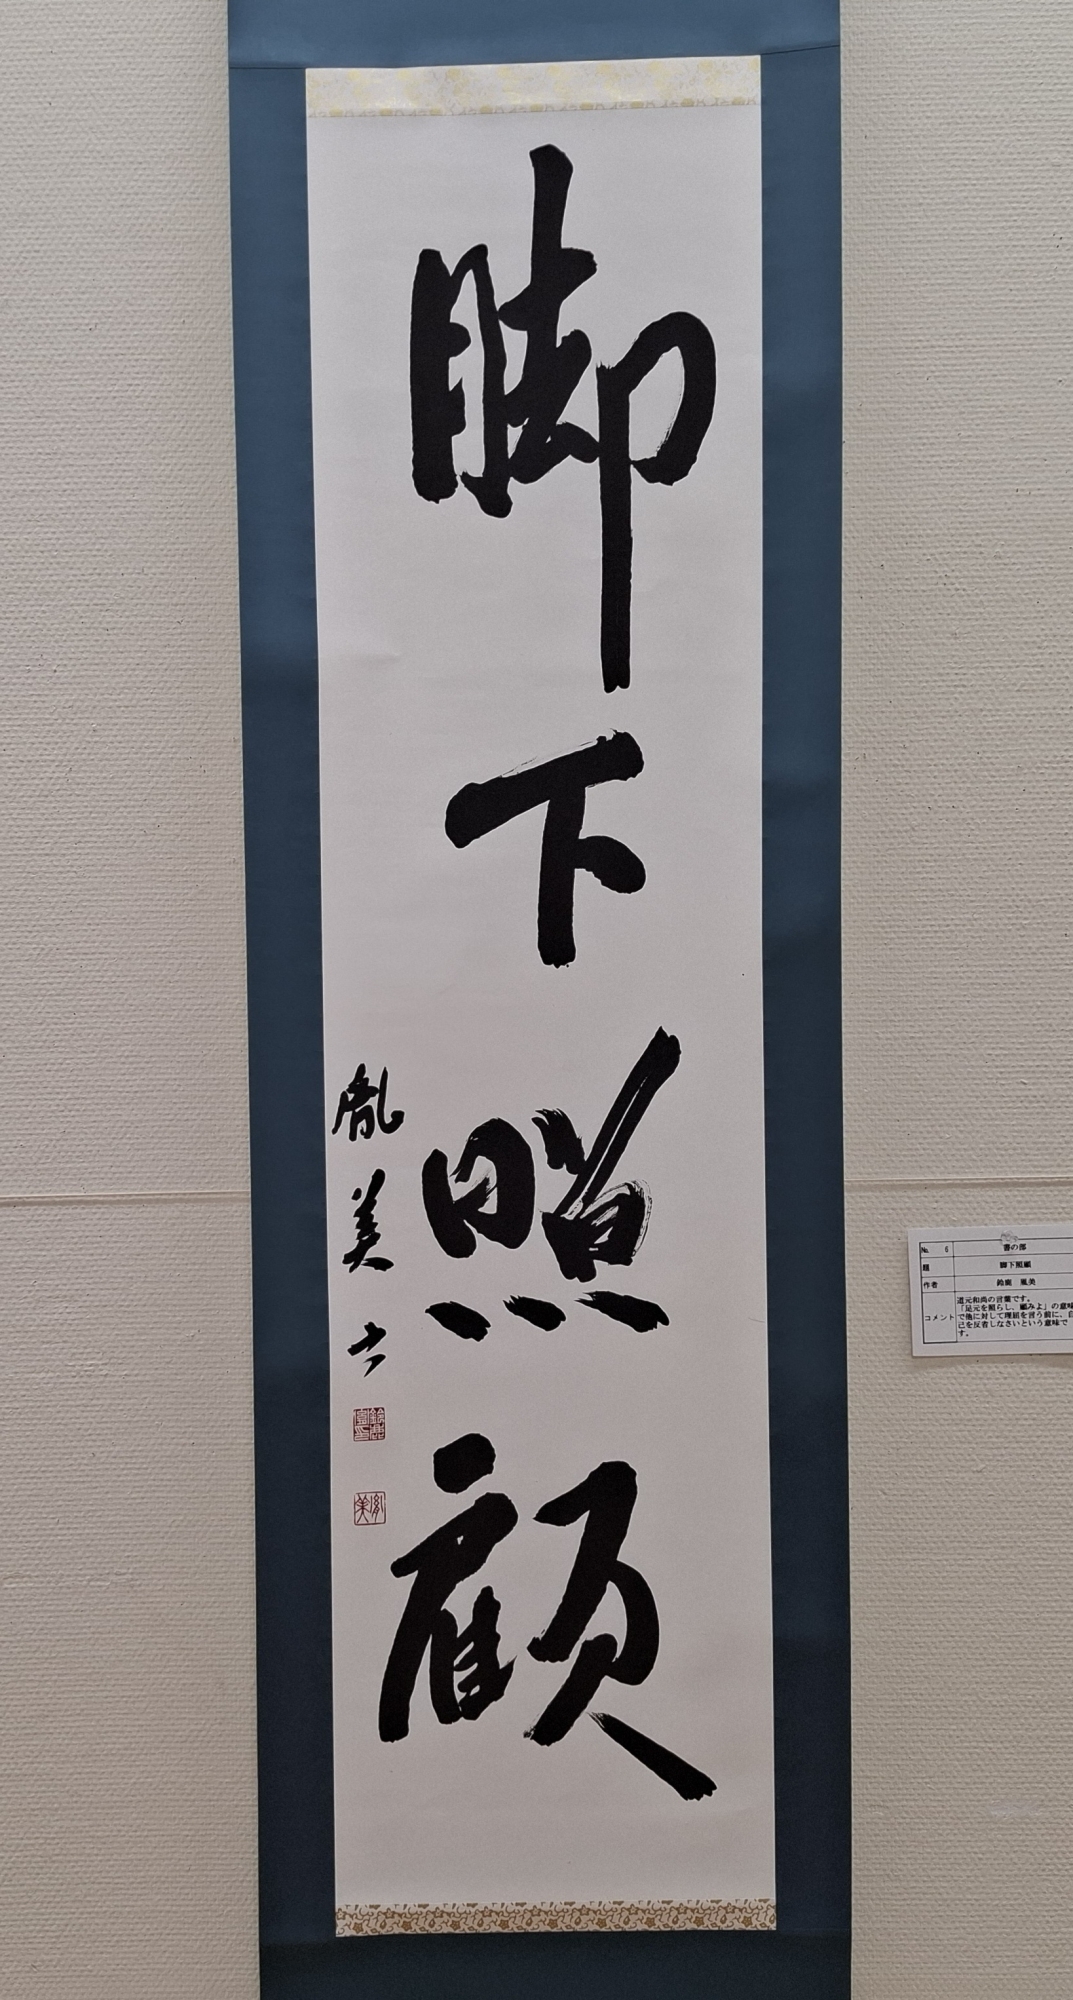 脚下照顧
胤美士
No. 6 書の部
題 脚下照顧
作者 鈴鹿 胤美
コメント
道元和尚の言葉です。
「足元を照らし、顧みよ」の意味
で他に対して理屈を言う前に、自
己を反省しなさいという意味で
す。